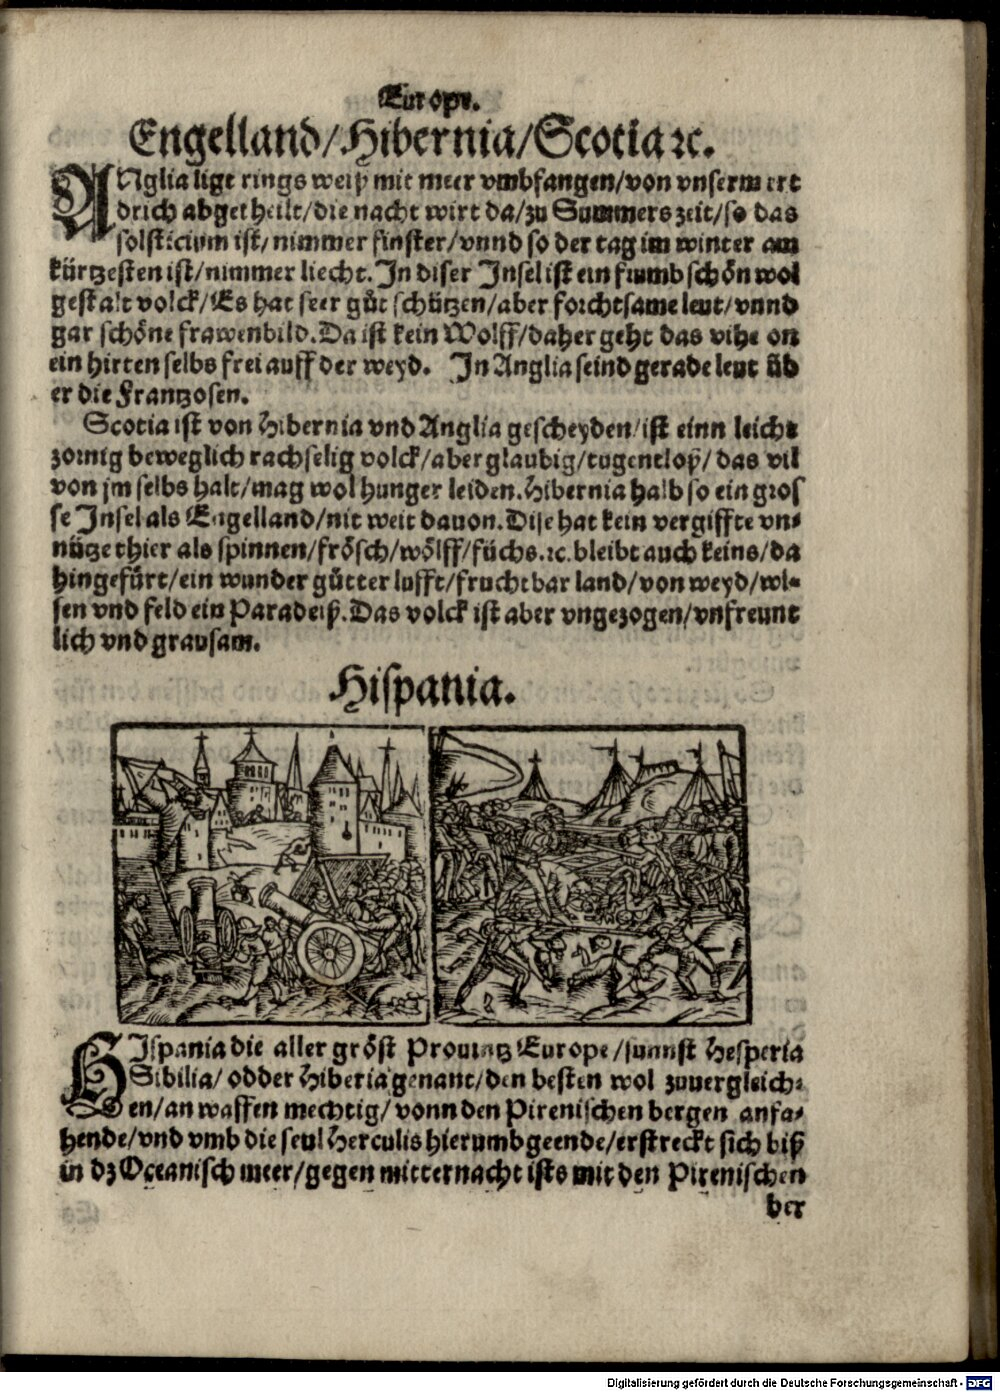 Europe.
Engelland/Hibernia/Scotia ꝛc.
ANglia ligt rings weiß mit meer vmbfangen/von vnserm ert
drich abgetheilt/die nacht wirt da/zu Summers zeit/so das
solsticium ist/nimmer finster/vnnd so der tag im winter am
kürtzesten ist/nimmer liecht. In diser Insel ist ein frumb schön wol
gestalt volck/Es hat seer gůt schützen/aber forchtsame leut/vnnd
gar schöne frawenbild. Da ist kein Wolff/daher geht das vihe on
ein hirten selbs frei auff der weyd. In Anglia seind gerade leut üb
er die Frantzosen.
Scotia ist von Hibernia vnd Anglia gescheyden/ist einn leicht
zornig beweglich rachselig volck/aberglaubig/tugentloß/das vil
von jm selbs halt/mag wol hunger leiden. Hibernia halb so ein gros
se Insel als Engelland/nit weit dauon. Dise hat kein vergiffte vn⸗
nütze thier als spinnen/frösch/wölff/füchs. ꝛc. bleibt auch keins/da
hingefürt/ein wunder gůtter lufft/fruchtbar land/von weyd/wi⸗
sen vnd feld ein Paradeiß. Das volck ist aber vngezogen/vnfreunt
lich vnd grausam.
Hispania.
HIspania die aller gröst Prouintz Europe/sunnst Hesperia
Sibilia/odder Hiberia genant/den besten wol zuuergleich⸗
en/an waffen mechtig/vonn den Pirenischen bergen anfa⸗
hende/vnd vmb die seul Herculis hierumb geende/erstreckt sich biß
in dz Oceanisch meer/gegen mitternacht ists mit den Pirenischen
ber
Digitalisierung gefördert durch die Deutsche Forschungsgemeinschaft - DFG